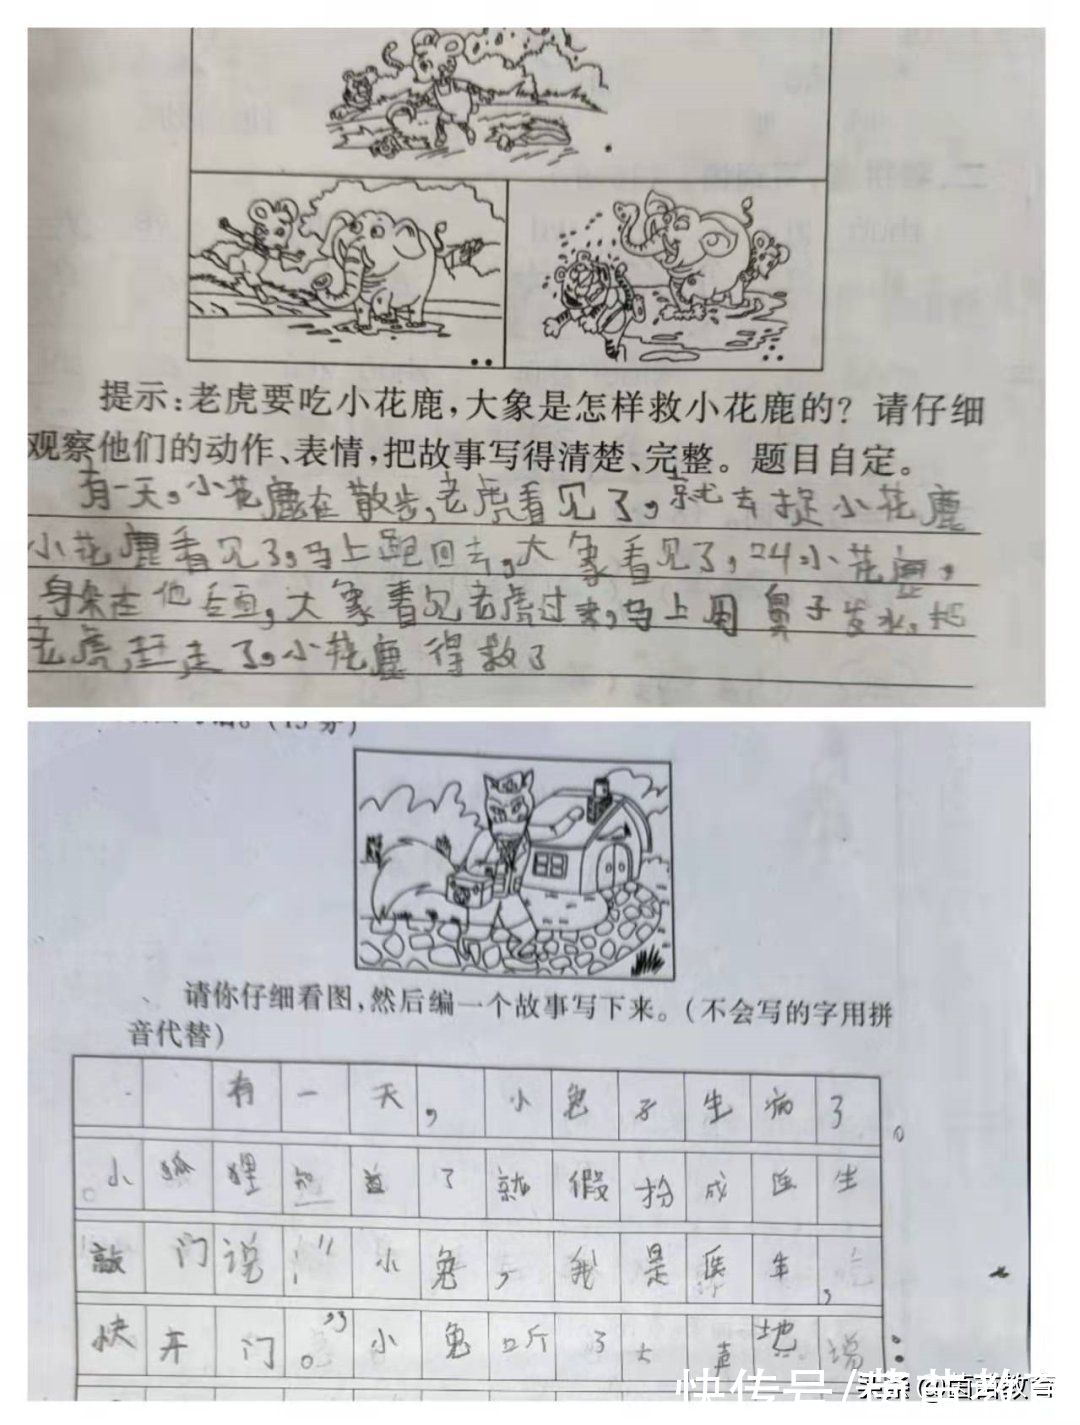 提示：老虎要吃小花鹿，大象是怎样救小花鹿的？请仔细
观察他们的动作、表情，把故事写得清楚、完整。题目自定。
有一天。小花鹿在散步，老虎看见了，就去捉小花鹿
小花鹿看见了，马上跑回去，大象看见了，叫小花鹿，
身朵在他后面，大象看见老虎过来，马上用鼻子发水，把
老虎赶走了，小花鹿得救了
(15分)
请你仔细看图，然后编一个故事写下来。（不会写的字用拼
音代替）
有一天，小兔子生病了。
小狐狸知道了就假扮成医生
敲门说：“小兔，我是医生，
快开门。”小兔听了大声地说
：
快传号/菡萏教育
头条 @菡萏教育